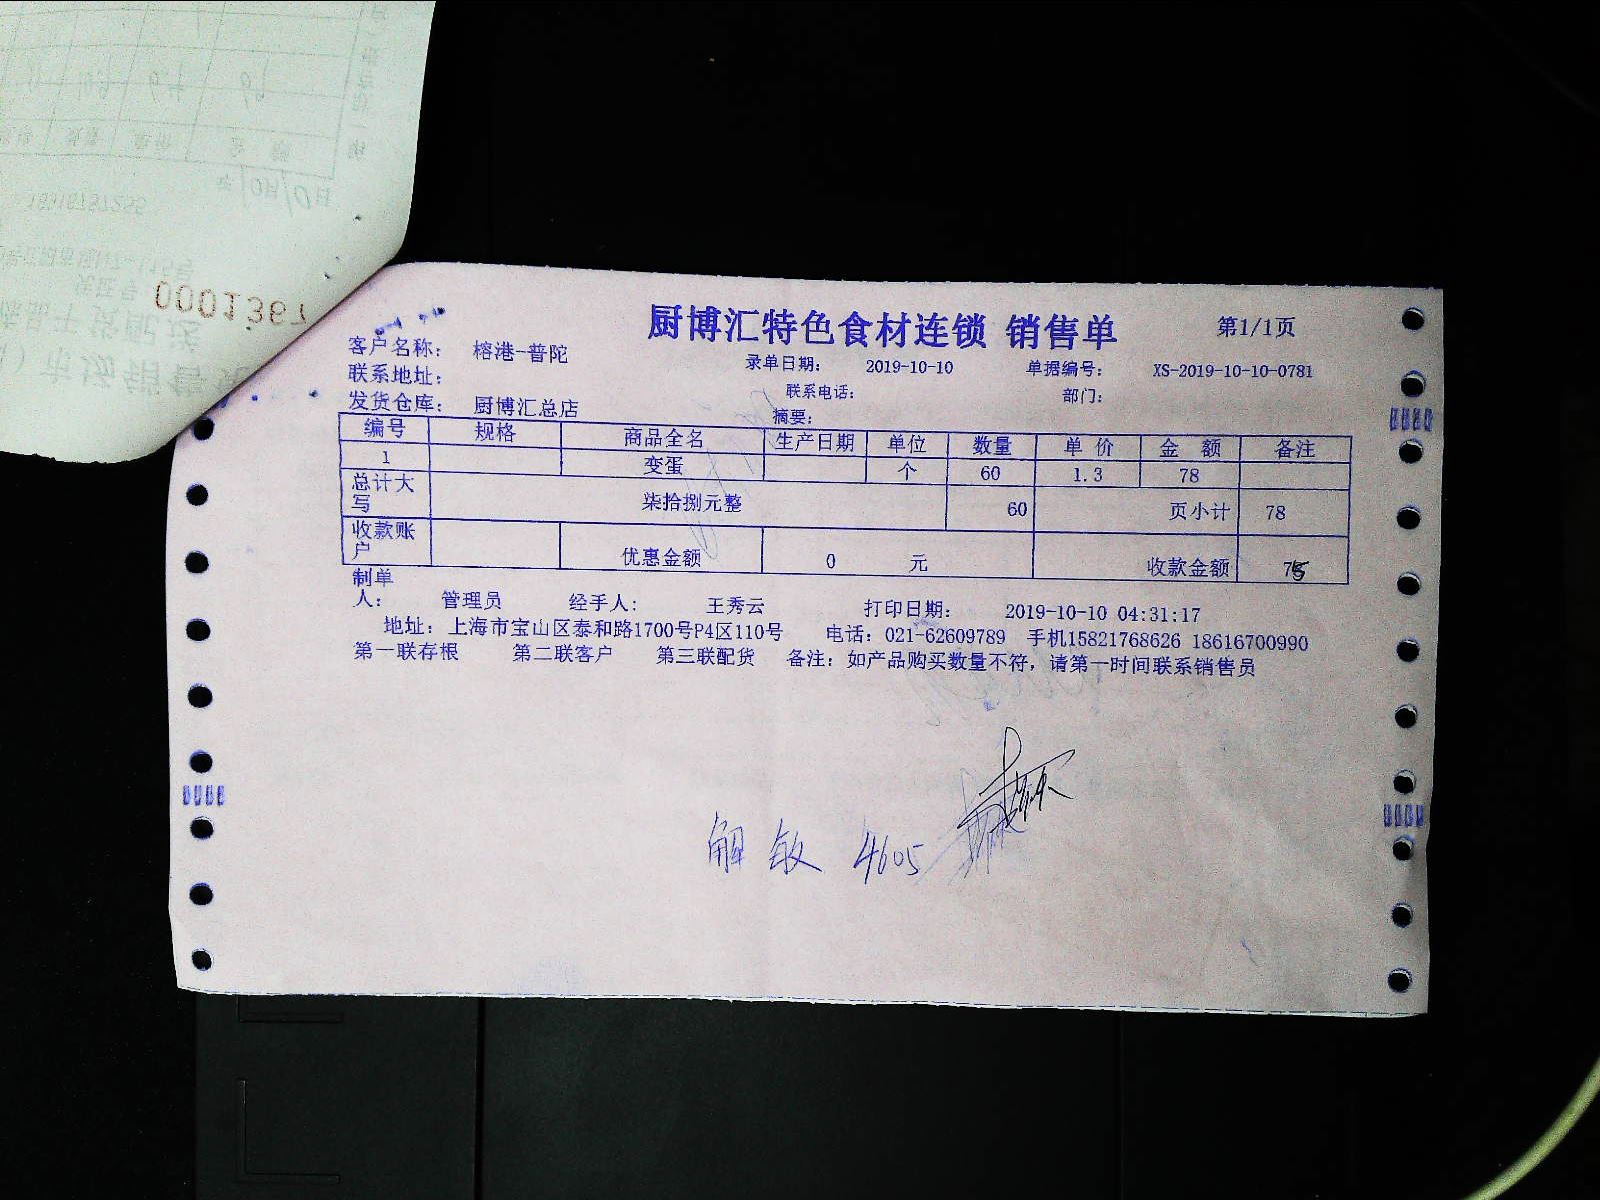 0001367
厨博汇特色食材连锁 销售单 第1/1页
客户名称： 榕港-普陀 录单日期： 2019-10-10 单据编号： XS-2019-10-10-0781
联系地址： 联系电话： 部门：
发货仓库： 厨博汇总店 摘要：
编号 规格 商品全名 生产日期 单位 数量 单 价 金 额 备注
1 变蛋 个 60 1.3 78
总计大写 柒拾捌元整 60 页小计 78
收款账户 优惠金额 0 元 收款金额
制单人： 管理员 经手人： 王秀云 打印日期： 2019-10-10 04:31:17
地址：上海市宝山区泰和路1700号P4区110号 电话：021-62609789 手机15821768626 18616700990
第一联存根 第二联客户 第三联配货 备注：如产品购买数量不符，请第一时间联系销售员
解敏 4605